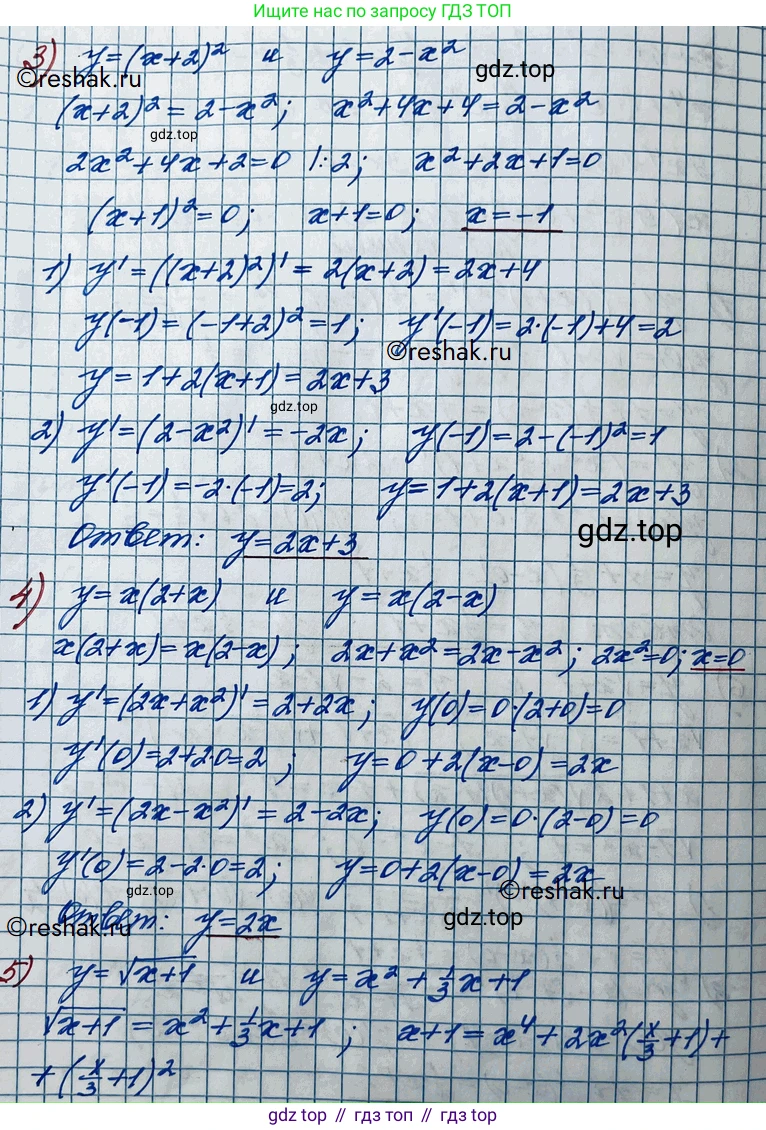 Ищите нас по запросу ГДЗ ТОП
3) y=(x+2)² и y=2-x²
©reshak.ru
gdz.top
(x+2)²=2-x²; x²+4x+4=2-x²
gdz.top
2x²+4x+2=0 |:2; x²+2x+1=0
(x+1)²=0; x+1=0; x=-1
1) y'=((x+2)²)'=2(x+2)=2x+4
y(-1)=(-1+2)²=1; y'(-1)=2·(-1)+4=2
©reshak.ru
y=1+2(x+1)=2x+3
gdz.top
2) y'=(2-x²)'=-2x; y(-1)=2-(-1)²=1
y'(-1)=-2·(-1)=2; y=1+2(x+1)=2x+3
gdz.top
Ответ: y=2x+3
4) y=x(2+x) и y=x(2-x)
x(2+x)=x(2-x); 2x+x²=2x-x²; 2x²=0; x=0
1) y'=(2x+x²)'=2+2x; y(0)=0·(2+0)=0
y'(0)=2+2·0=2; y=0+2(x-0)=2x
2) y'=(2x-x²)'=2-2x; y(0)=0·(2-0)=0
y'(0)=2-2·0=2; y=0+2(x-0)=2x
gdz.top
©reshak.ru
Ответ: y=2x
©reshak.ru
gdz.top
5) y=√(x+1) и y=x²+1/3x+1
√(x+1)=x²+1/3x+1; x+1=x⁴+2x²(x/3+1)+
+(x/3+1)²
gdz.top // гдз топ // gdz.top